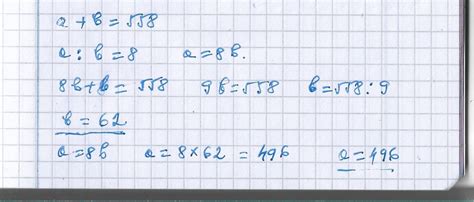 a + b = 558
a : b = 8 a = 8b.
8b + b = 558 9b = 558 b = 558 : 9
b = 62
a = 8b a = 8 × 62 = 496 a = 496